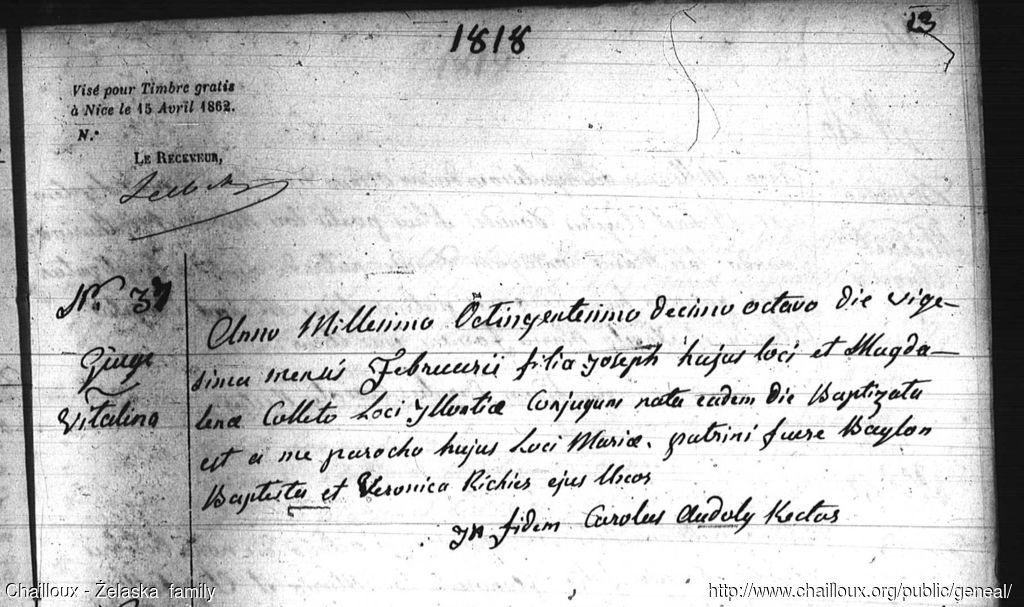 1818
13
Visé pour Timbre gratis
à Nice le 15 Avril 1862.
N.°
LE RECEVEUR,
N.° 37
Giuge
Vitalina
Anno Millesimo Octingentesimo decimo octavo die vige-
sima mensis Februarii filia Joseph hujus loci et Magda-
lenæ Colleto Loci Conjugum nata eadem die Baptizata
est a me parocho hujus Loci Mariæ. patrini fuere Baylon
Baptista et Veronica Richier ejus Uxor
In fidem Carolus Audoly Rector
Chailloux - Żelaska family
http://www.chailloux.org/public/geneal/